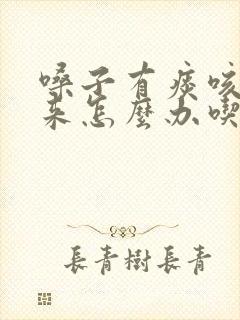 嗓子有痰咳
来怎麽办喫
長青樹長青